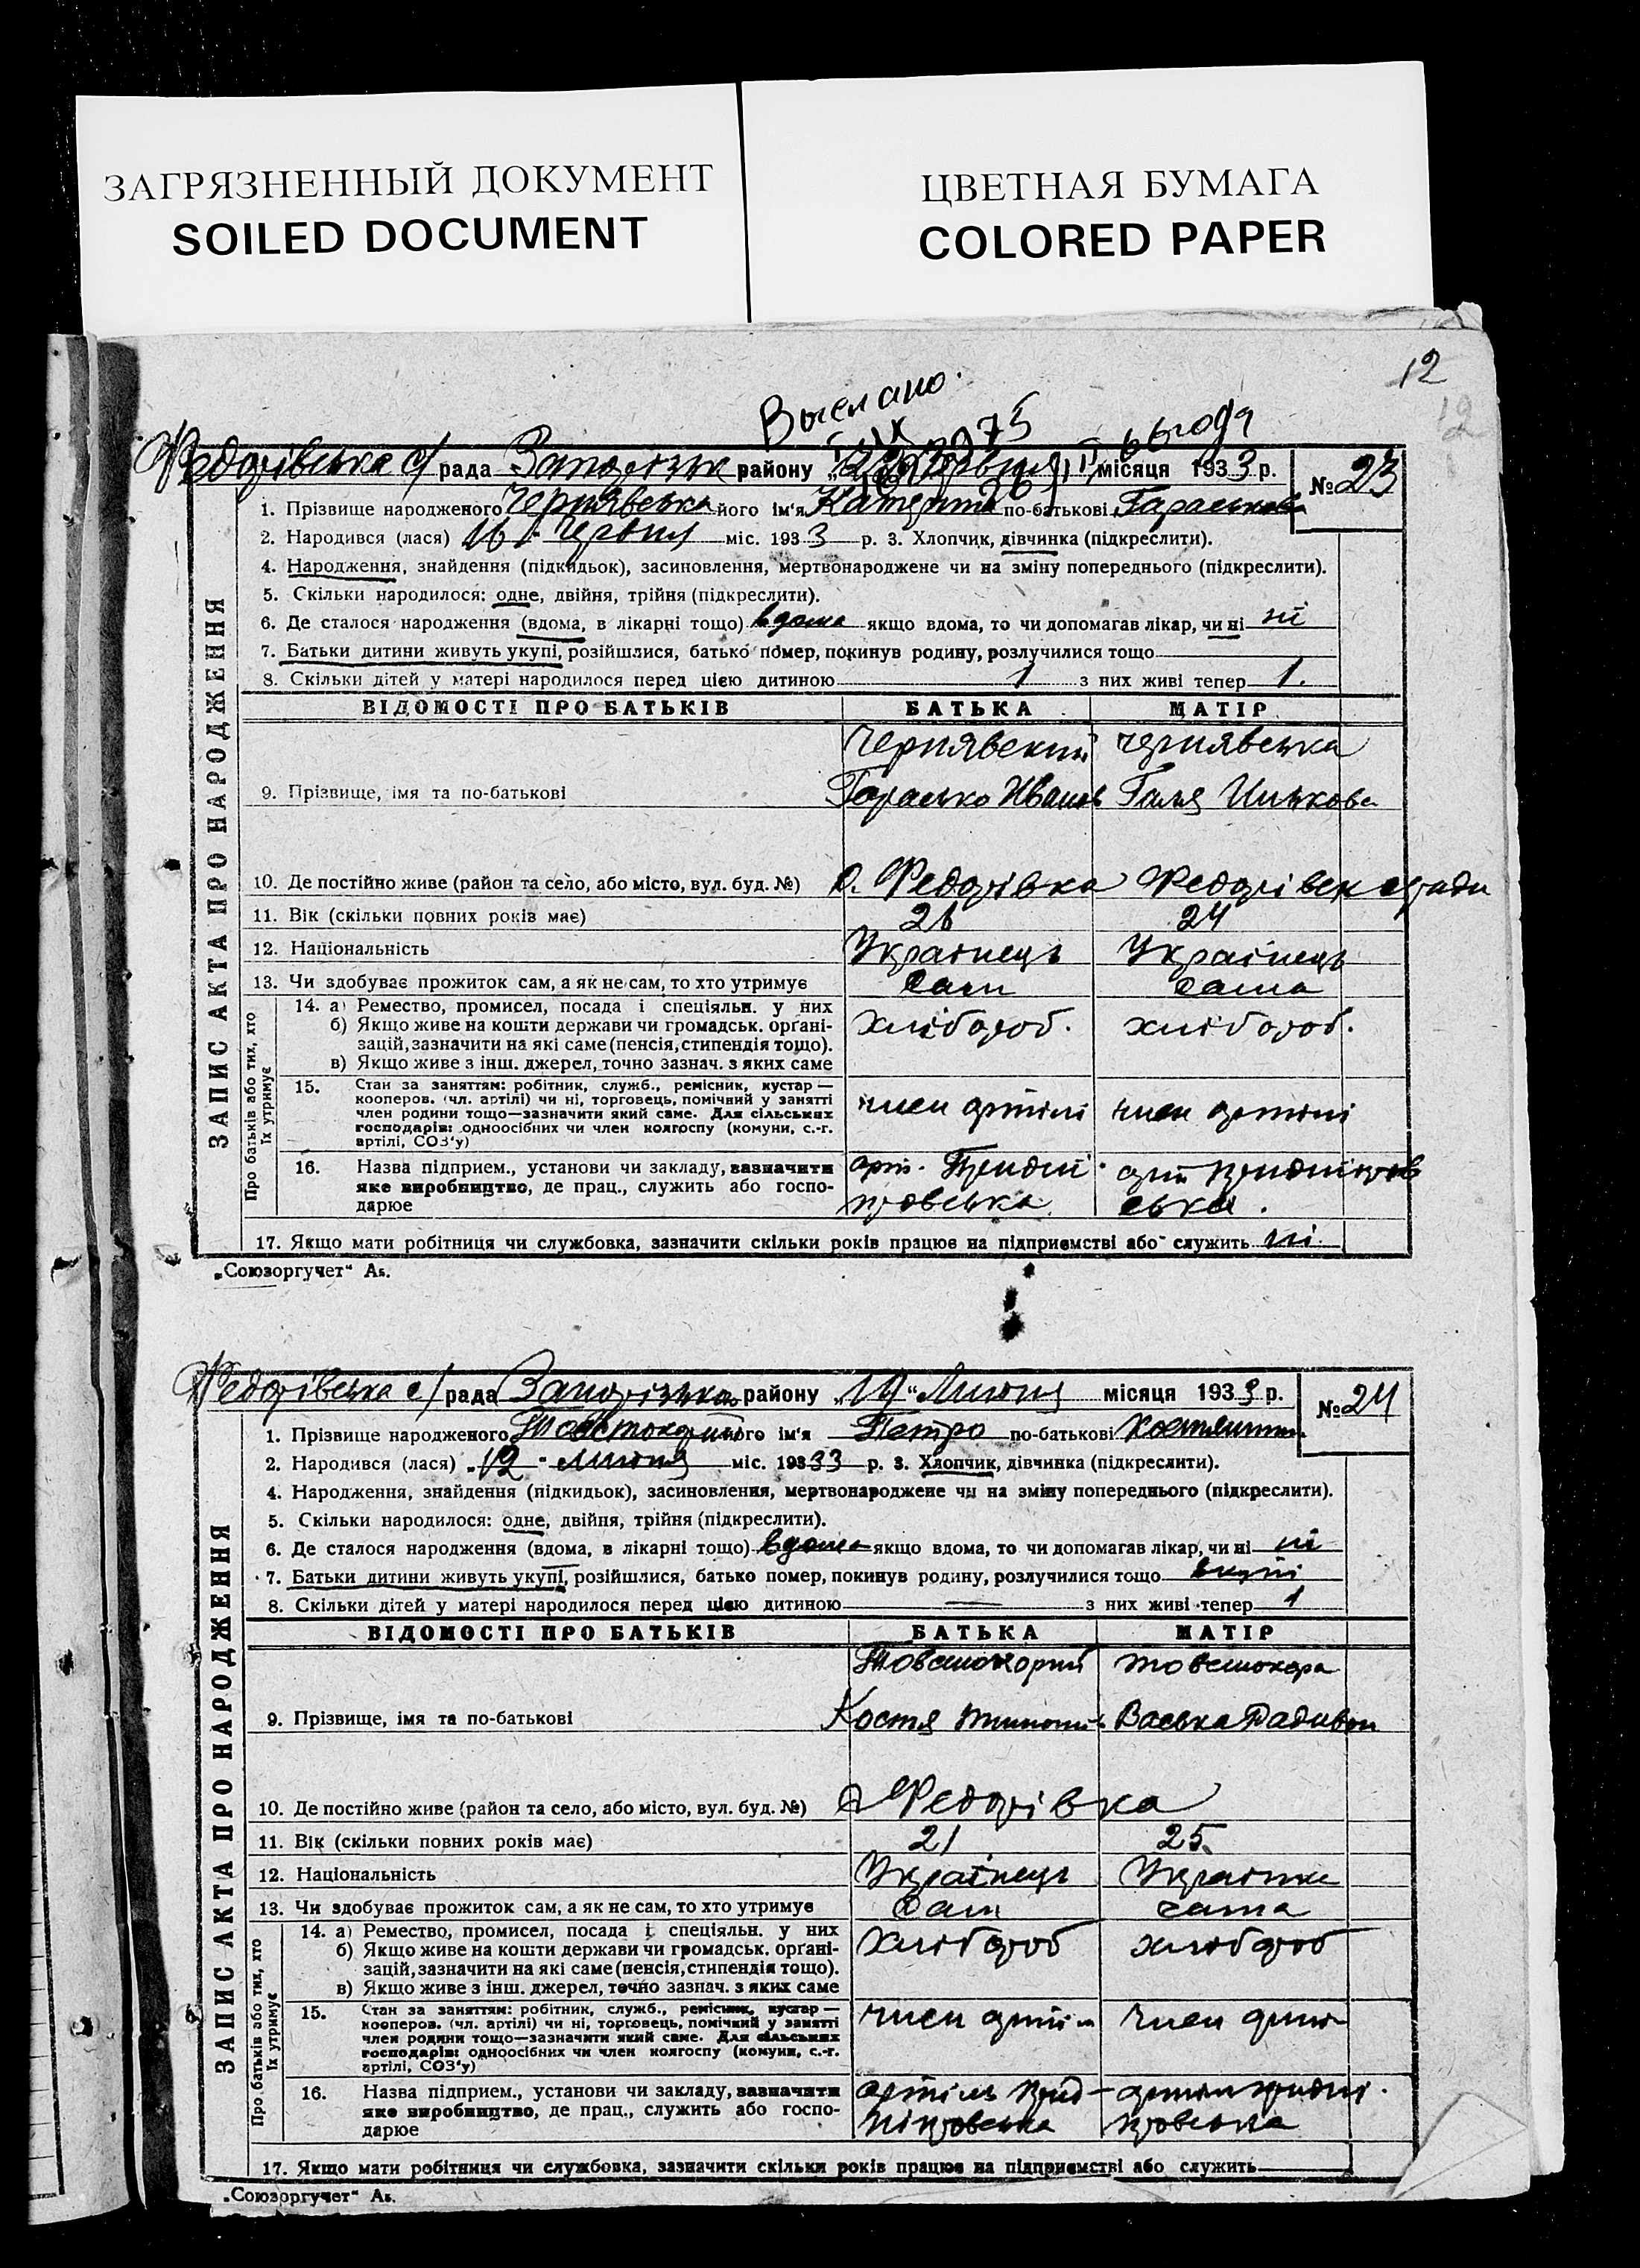 ЗАГРЯЗНЕННЫЙ ДОКУМЕНТ
SOILED DOCUMENT
ЦВЕТНАЯ БУМАГА
COLORED PAPER
12
12
Выслано.
Федорівська с/рада Запорізька району місяця 1933 р. №23
ЗАПИС АКТА ПРО НАРОДЖЕННЯ
1. Прізвище народженого Чернявська його ім'я Катерина по-батькові Гараськова
2. Народився (лася) 16 Червня міс. 1933 р. 3. Хлопчик, дівчинка (підкреслити).
4. Народження, знайдення (підкидьок), засиновлення, мертвонароджене чи на зміну попереднього (підкреслити).
5. Скільки народилося: одне, двійня, трійня (підкреслити).
6. Де сталося народження (вдома, в лікарні тощо) вдома якщо вдома, то чи допомагав лікар, чи ні ні
7. Батьки дитини живуть укупі, розійшлися, батько помер, покинув родину, розлучилися тощо
8. Скільки дітей у матері народилося перед цією дитиною 1 з них живі тепер 1.
ВІДОМОСТІ ПРО БАТЬКІВ БАТЬКА МАТІР
Чернявский чернявська
9. Прізвище, імя та по-батькові Гарасько Иванов Галя
10. Де постійно живе (район та село, або місто, вул. буд. №) с. Федорівка Федорівск сради
11. Вік (скільки повних років має) 26 24
12. Національність Українець Українець
13. Чи здобуває прожиток сам, а як не сам, то хто утримує Сам сама
Про батьків або тих, хто їх утримує
14. а) Ремество, промисел, посада і спеціяльн. у них
б) Якщо живе на кошти держави чи громадськ. орґані- хлібороб. хлібороб.
зацій, зазначити на які саме (пенсія, стипендія тощо).
в) Якщо живе з інш. джерел, точно зазнач. з яких саме
15. Стан за заняттям: робітник, служб., ремісник, кустар —
кооперов. (чл. артілі) чи ні, торговець, помічний у занятті
член родини тощо—зазначити який саме. Для сільських член артілі член артілі
господарів: одноосібних чи член колгоспу (комуни, с.-г.
артілі, СОЗ'у)
16. Назва підприєм., установи чи закладу, зазначити арт. Придні- арт придніпров
яке виробництво, де прац., служить або госпо- провська ська.
дарює
17. Якщо мати робітниця чи службовка, зазначити скільки років працює на підприємстві або служить ні
„Союзоргучет“ Ак.
Федорівська с/рада Запорізька району „19“ Липня місяця 1933 р. №24
ЗАПИС АКТА ПРО НАРОДЖЕННЯ
1. Прізвище народженого Товстокорий його ім'я Петро по-батькові
2. Народився (лася) „12“ Липня міс. 19333 р. 3. Хлопчик, дівчинка (підкреслити).
4. Народження, знайдення (підкидьок), засиновлення, мертвонароджене чи на зміну попереднього (підкреслити).
5. Скільки народилося: одне, двійня, трійня (підкреслити).
6. Де сталося народження (вдома, в лікарні тощо) вдома якщо вдома, то чи допомагав лікар, чи ні ні
7. Батьки дитини живуть укупі, розійшлися, батько помер, покинув родину, розлучилися тощо вкупі
8. Скільки дітей у матері народилося перед цією дитиною — з них живі тепер 1
ВІДОМОСТІ ПРО БАТЬКІВ БАТЬКА МАТІР
Товстокорий товстокора
9. Прізвище, імя та по-батькові Костя Васька
10. Де постійно живе (район та село, або місто, вул. буд. №) с Федорівка
11. Вік (скільки повних років має) 21 25
12. Національність Українець Українка
13. Чи здобуває прожиток сам, а як не сам, то хто утримує Сам сама
Про батьків або тих, хто їх утримує
14. а) Ремество, промисел, посада і спеціяльн. у них
б) Якщо живе на кошти держави чи громадськ. орґані- Хлібороб хлібороб
зацій, зазначити на які саме (пенсія, стипендія тощо).
в) Якщо живе з інш. джерел, точно зазнач. з яких саме
15. Стан за заняттям: робітник, служб., ремісник, кустар —
кооперов. (чл. артілі) чи ні, торговець, помічний у занятті член артіл член артіл
член родини тощо—зазначити який саме. Для сільських
господарів: одноосібних чи член колгоспу (комуни, с.-г.
артілі, СОЗ'у)
16. Назва підприєм., установи чи закладу, зазначити артіль Прид- артіл придні-
яке виробництво, де прац., служить або госпо- ніпровська провська
дарює
17. Якщо мати робітниця чи службовка, зазначити скільки років працює на підприємстві або служить
„Союзоргучет“ Ак.